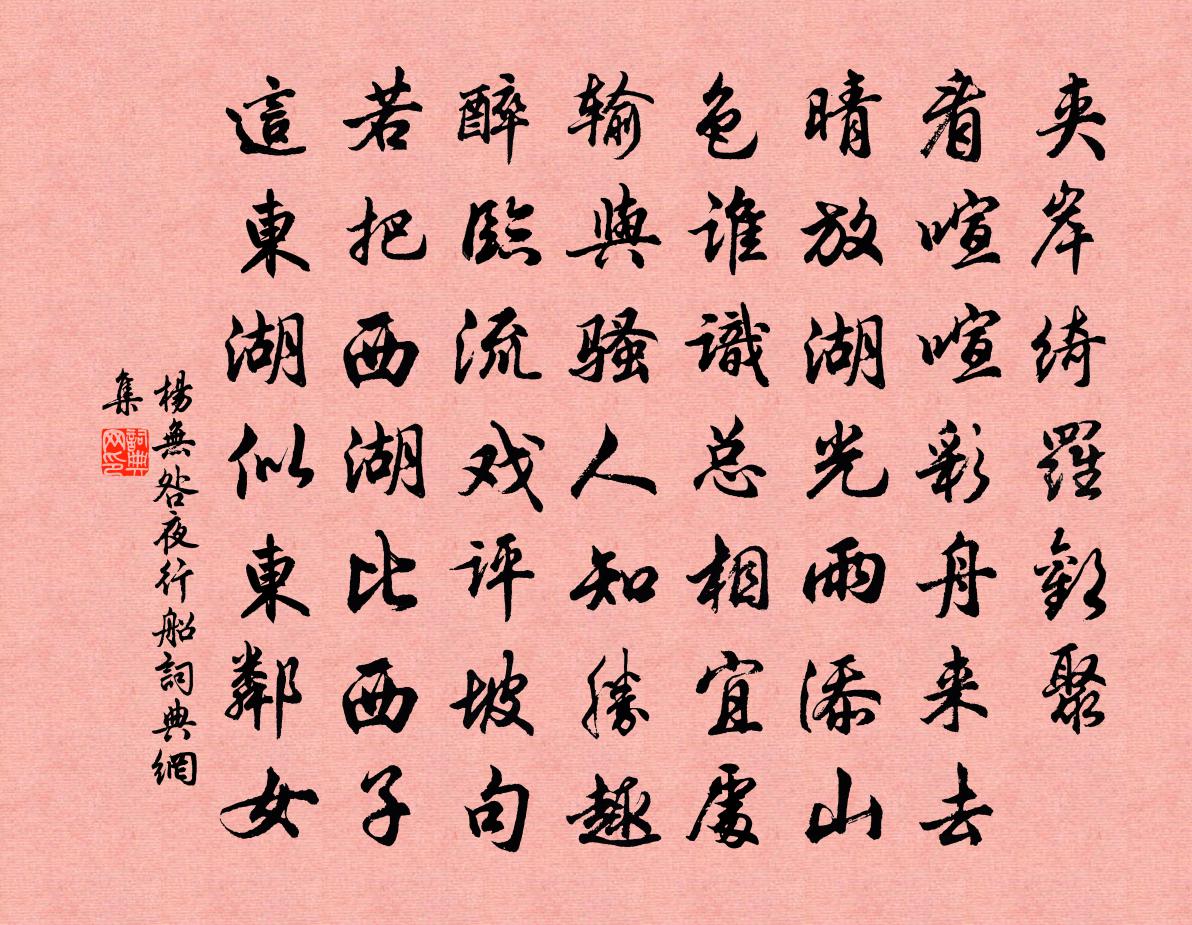 夹岸綺羅歡聚
看喧喧彩舟来去
晴放湖光雨添山
色谁識总相宜處
输與骚人知勝趣
醉臨流戏评坡句
若把西湖比西子
這東湖似東鄰女
楊無咎夜行船詞典網
集
詞典网印